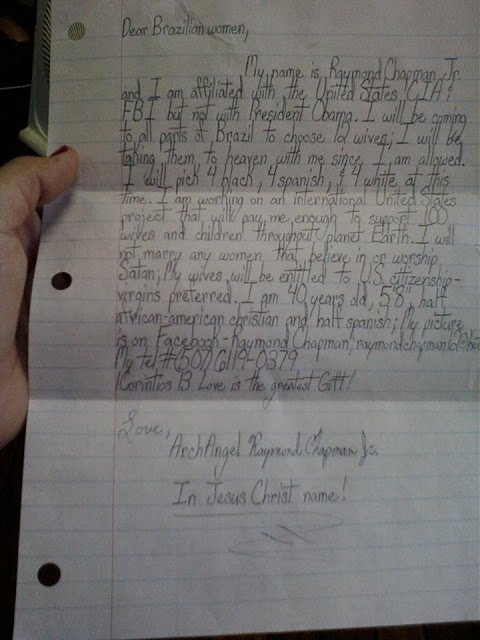 Dear Brazilian women,
My name is Raymond Chapman Jr.
and I am affiliated with the United States CIA &
FBI but not with President Obama. I will be coming
to all parts of Brazil to choose 12 wives; I will be
taking them to heaven with me since I am allowed.
I will pick 4 black, 4 spanish, & 4 white at this
time. I am working on an international United States
project that will pay me enough to support 100
wives and children throughout planet Earth. I will
not marry any women that believe in or worship
Satan; My wives will be entitled to U.S. citizenship-
virgins preferred. I am 40 years old, 5'8", half
african-american christian and half spanish; My picture
is on Facebook-Raymond Chapman; raymondchapman
My tel #(507)6119-0379
1 Corintios 13 Love is the greatest Gift!
Love,
ArchAngel Raymond Chapman Jr.
In Jesus Christ name!